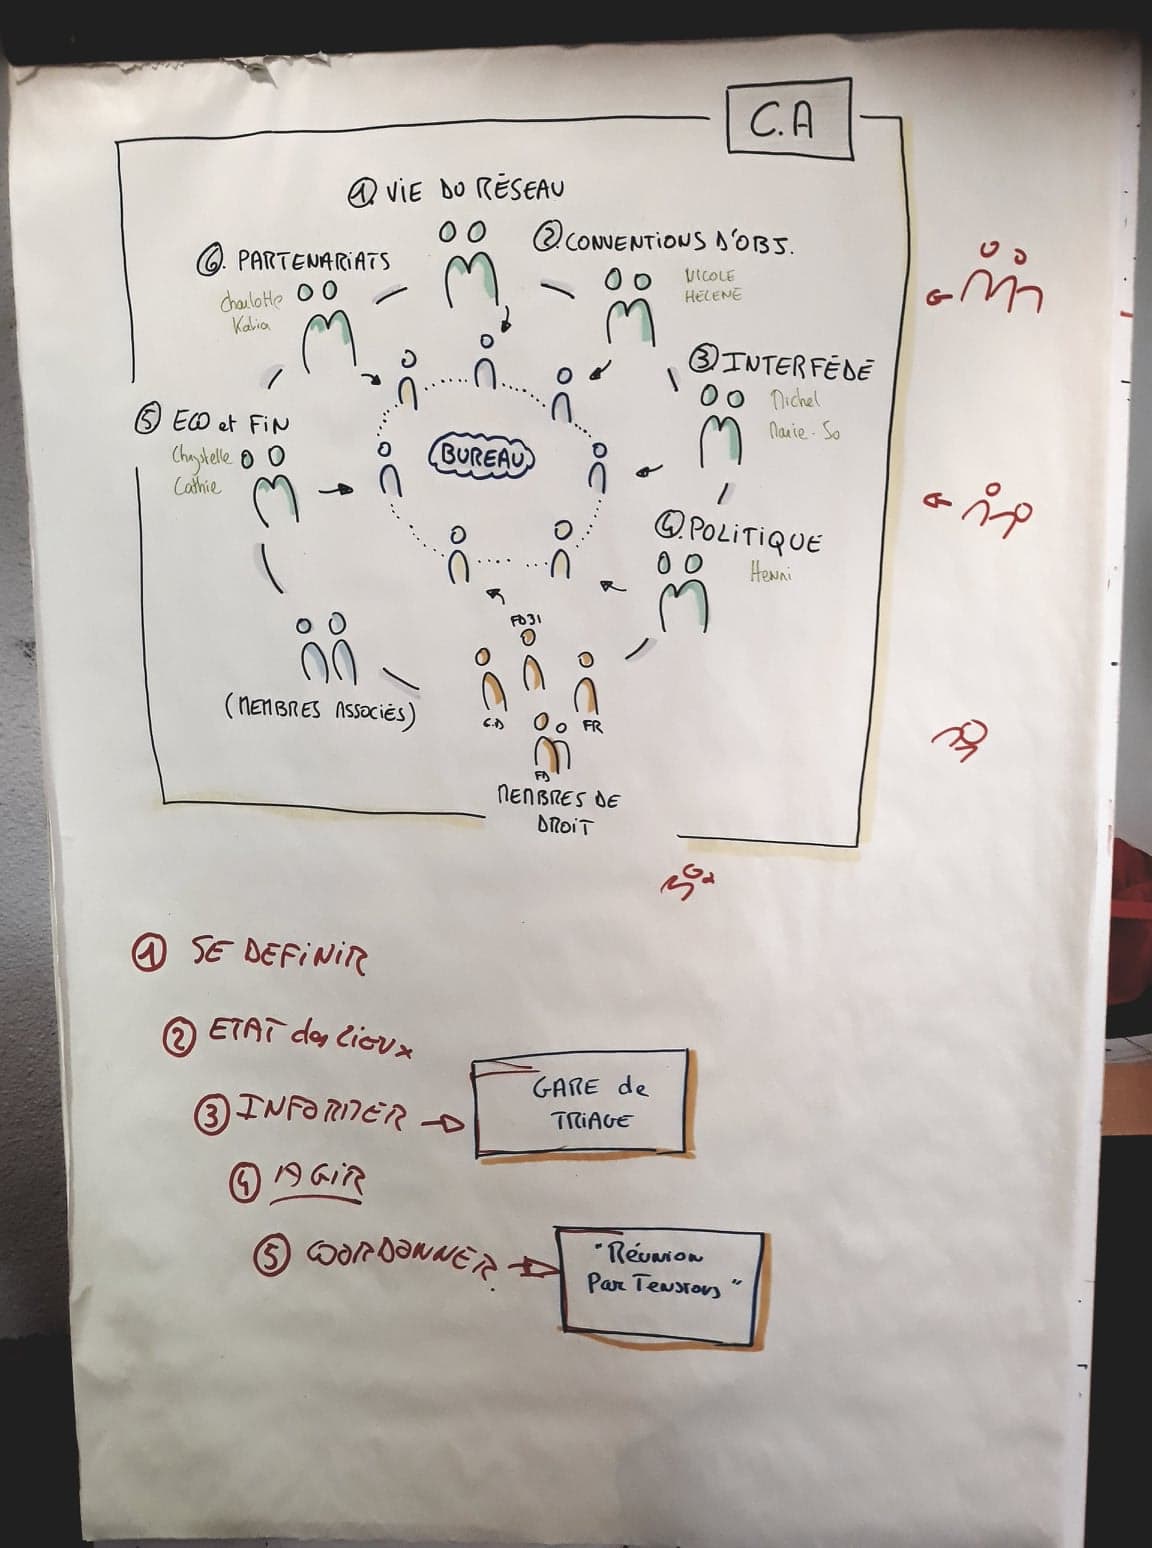 C.A
① VIE DU RÉSEAU
② CONVENTIONS D'OBJ.
NICOLE
HÉLÈNE
⑥. PARTENARIATS
Charlotte
Katia
③ INTERFÉDÉ
Michel
Marie-So
⑤ ECO et FIN
Chrystelle
Cathie
BUREAU
④. POLITIQUE
Henri
FD31
(MEMBRES ASSOCIÉS)
C.D
FR
FD
MEMBRES DE
DROIT
① SE DEFINIR
② ETAT des lieux
③ INFORMER
GARE de
TRIAGE
④ AGIR
⑤ COORDONNER
"Réunion
Par Tensions"